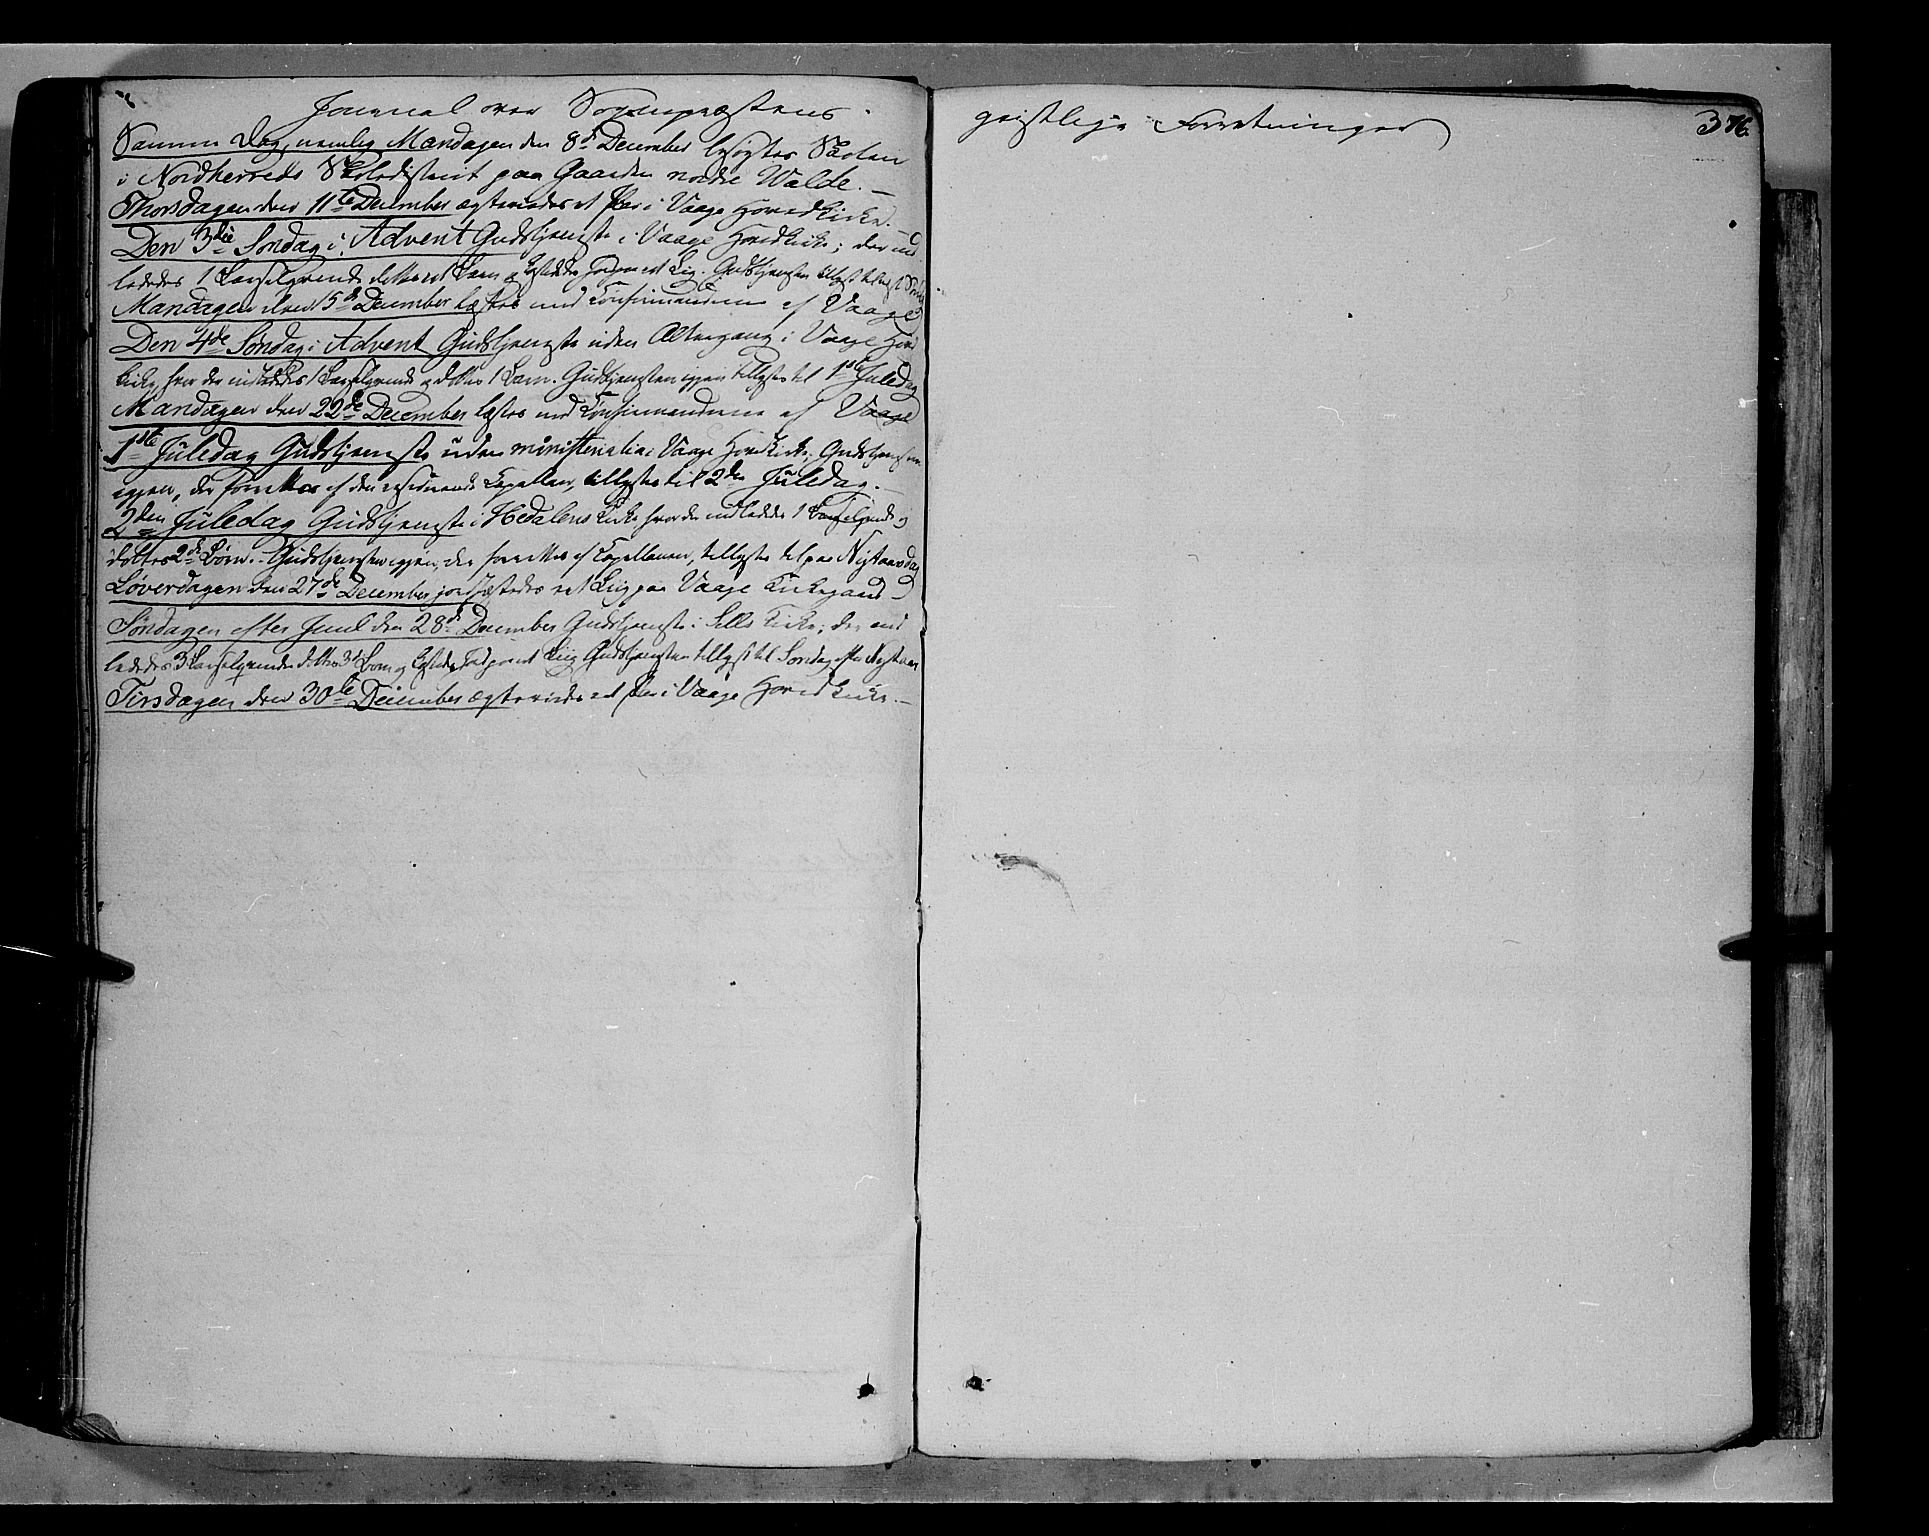 Journal over Sognepræstens
geistlige Forretninger
376.
Samme Dag, nemlig Mandagen den 8de December besøgtes Skolen
i Nordherreds Skoledistrict paa Gaarden nordre Walde. —
Thorsdagen den 11te December ægteviedes et Par i Vaage Hovedkirke. —
Den 3die Søndag i Advent Gudstjeneste i Vaage Hovedkirke; der ind
lededes 1 Barselqvinde døbtes et Barn og Lig. Gudstjenesten
Mandagen den 15de December læstes med Confirmanderne af Vaage
Den 4de Søndag i Advent Gudstjeneste uden Altergang i Vaage Hoved
kirke, hvor der indlededes 1 Barselqvinde og døbtes 1 Barn. Gudstjenesten igjen tillyst til 1ste Juledag
Mandagen den 22de December læstes med Confirmanderne af Vaage
1ste Juledag Gudstjeneste uden ministerialia i Vaage Hovedkirke; Gudstjenesten
igjen, der forrettes af den residerende Capellan, tillystes til 2den Juledag. —
2den Juledag Gudstjeneste i Hedalens Kirke hvor der indlededes 1 Barselqvinde og
døbtes 2de Børn. Gudstjenesten igjen, der forrettes af Capellanen, tillystes til paa Nytaarsdag
Løverdagen den 27de December jordfæstedes et Liig paa Vaage Kirkegaard
Søndagen efter Juul den 28de December Gudstjeneste i Sells Kirke; der ind
lededes 3 Barselqvinder døbtes 3 Børn og Liig Gudstjenesten tillyst til Søndag efter Nytaar
Tirsdagen den 30te December ægteviedes et Par i Vaage Hovedkirke. —